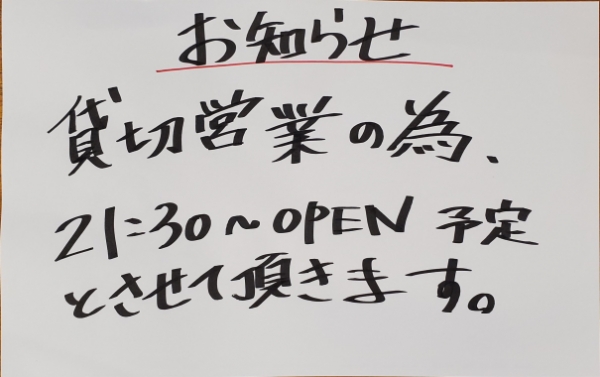 お知らせ
貸切営業の為、
21:30~OPEN 予定
とさせて頂きます。